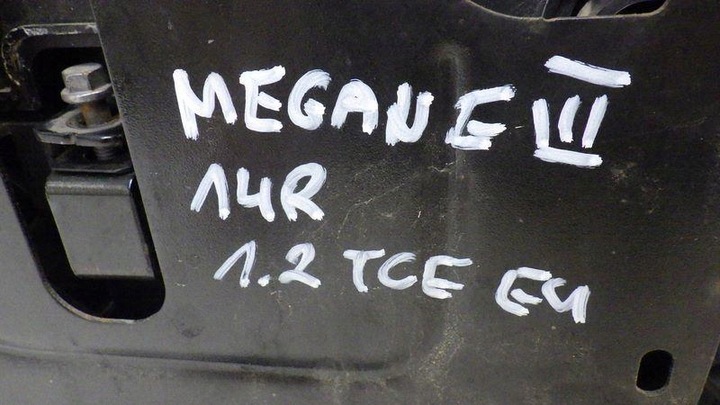 MEGANE III
14R
1.2 TCE E4